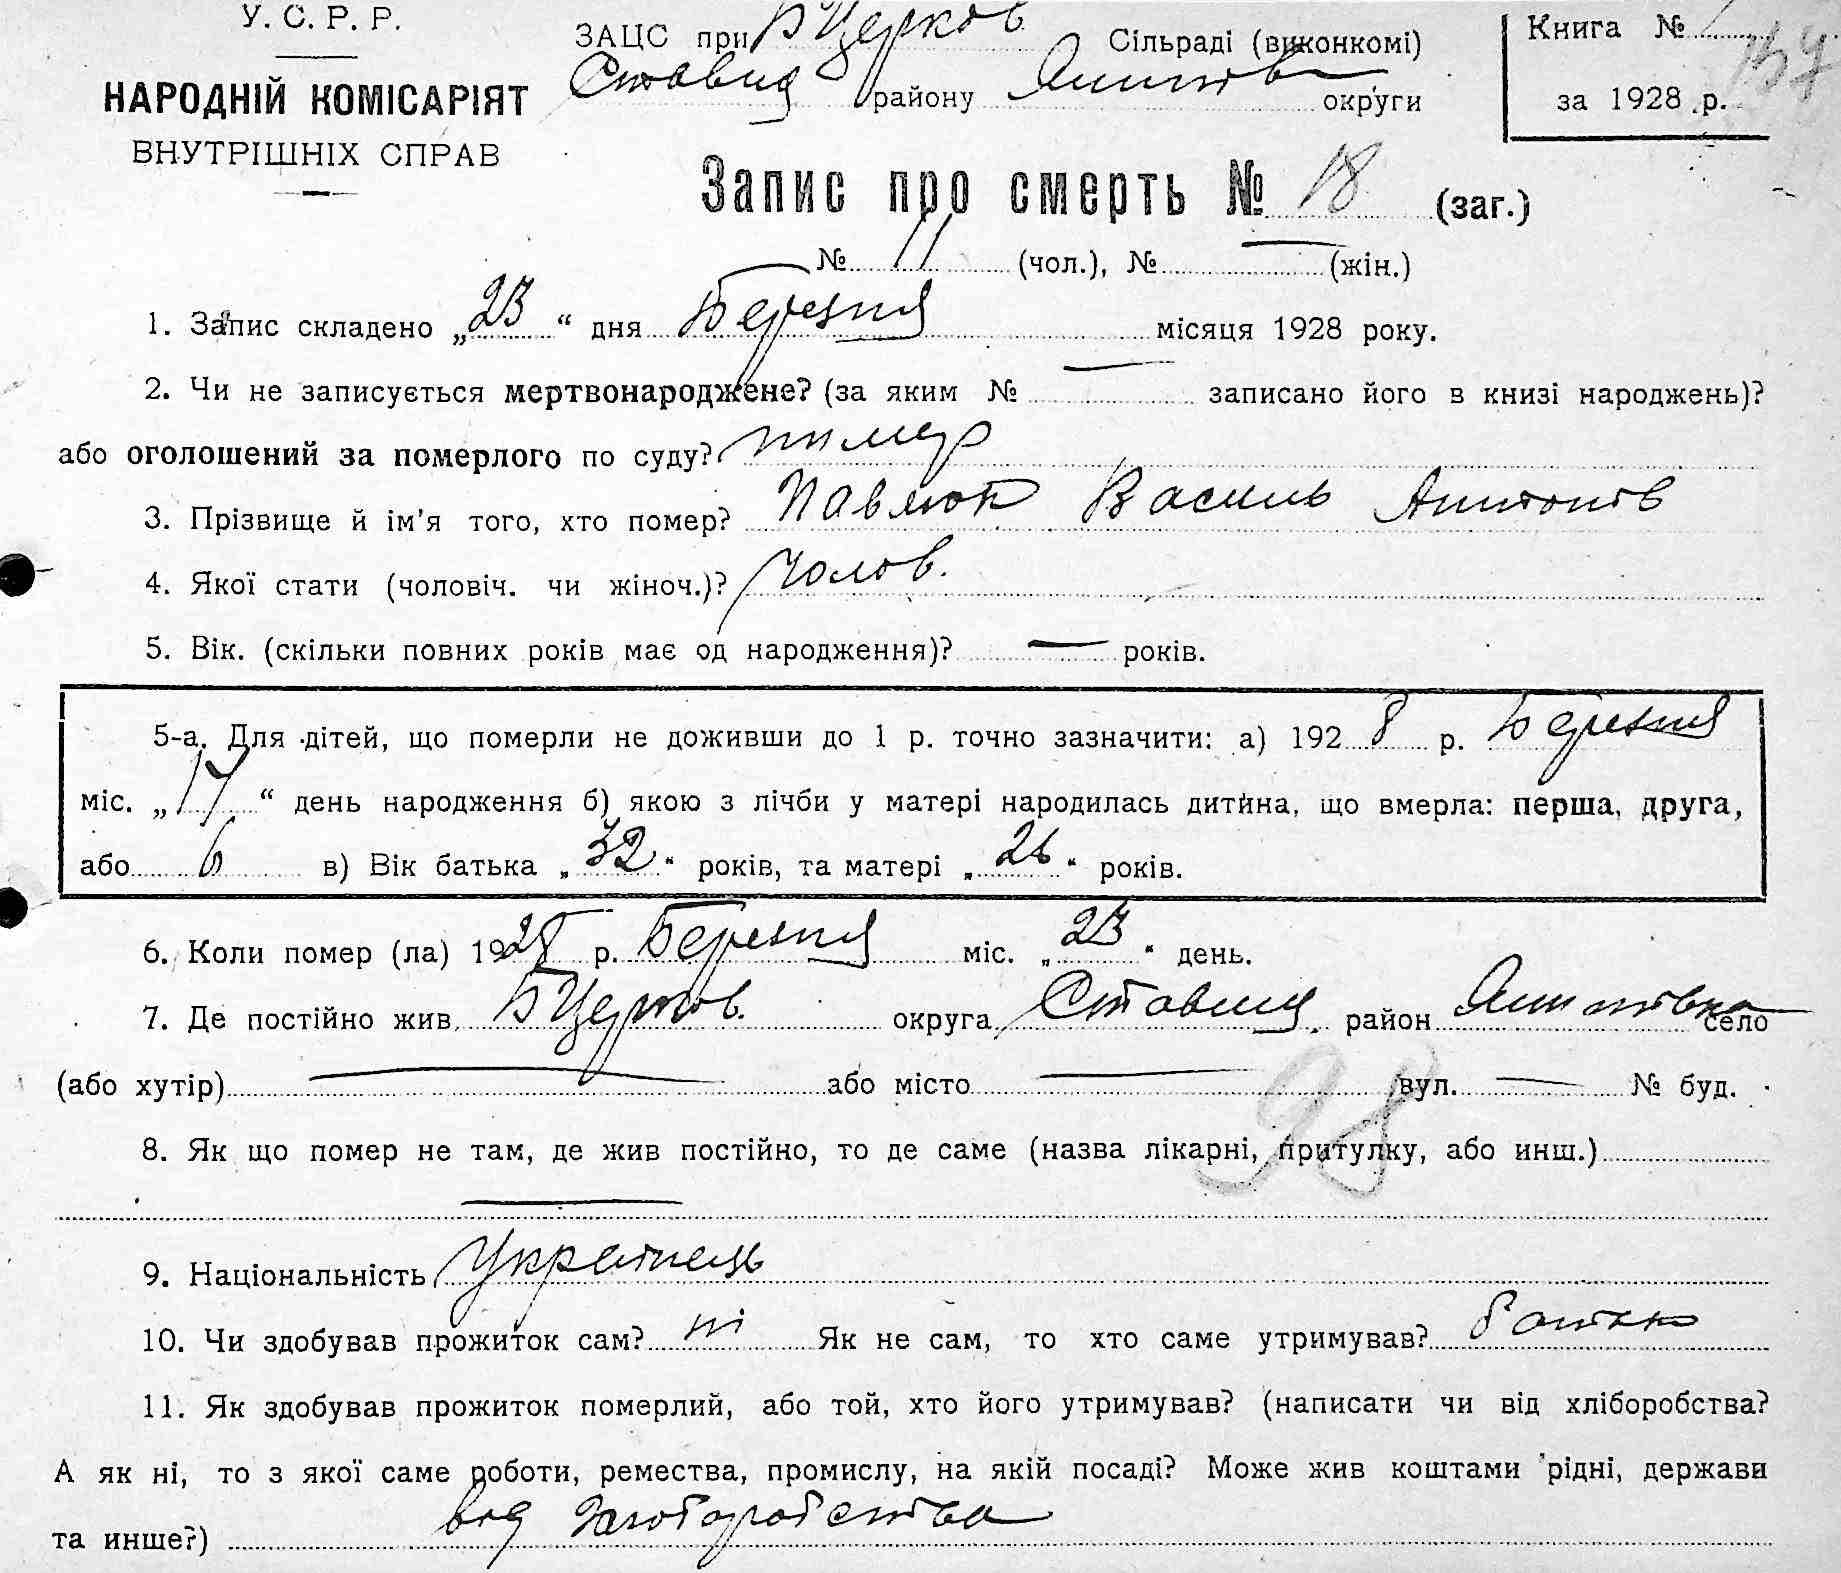 У. С. Р. Р.
НАРОДНІЙ КОМІСАРІЯТ
ВНУТРІШНІХ СПРАВ
ЗАЦС при Б Церков Сільраді (виконкомі)
Ставищ району округи
Книга №
за 1928 р.
157
Запис про смерть № 18 (заг.)
№ 11 (чол.), № — (жін.)
1. Запис складено „23“ дня Березня місяця 1928 року.
2. Чи не записується мертвонароджене? (за яким № — записано його в книзі народжень)?
або оголошений за померлого по суду? помер
3. Прізвище й ім'я того, хто помер? Павлюк Василь Антонів
4. Якої стати (чоловіч. чи жіноч.)? Чолов.
5. Вік. (скільки повних років має од народження)? — років.
5-а. Для дітей, що померли не доживши до 1 р. точно зазначити: а) 1928 р. Березня
міс. „17“ день народження б) якою з лічби у матері народилась дитина, що вмерла: перша, друга,
або 6 в) Вік батька „32“ років, та матері „26“ років.
6. Коли помер (ла) 1928 р. Березня міс. „23“ день.
7. Де постійно жив Б Церков. округа Ставищ. район село
(або хутір) — або місто — вул. — № буд.
98
8. Як що помер не там, де жив постійно, то де саме (назва лікарні, притулку, або инш.)
—
9. Національність Українець
10. Чи здобував прожиток сам? ні Як не сам, то хто саме утримував? батько
11. Як здобував прожиток померлий, або той, хто його утримував? (написати чи від хліборобства?
А як ні, то з якої саме роботи, ремества, промислу, на якій посаді? Може жив коштами рідні, держави
та инше?) від хліборобства